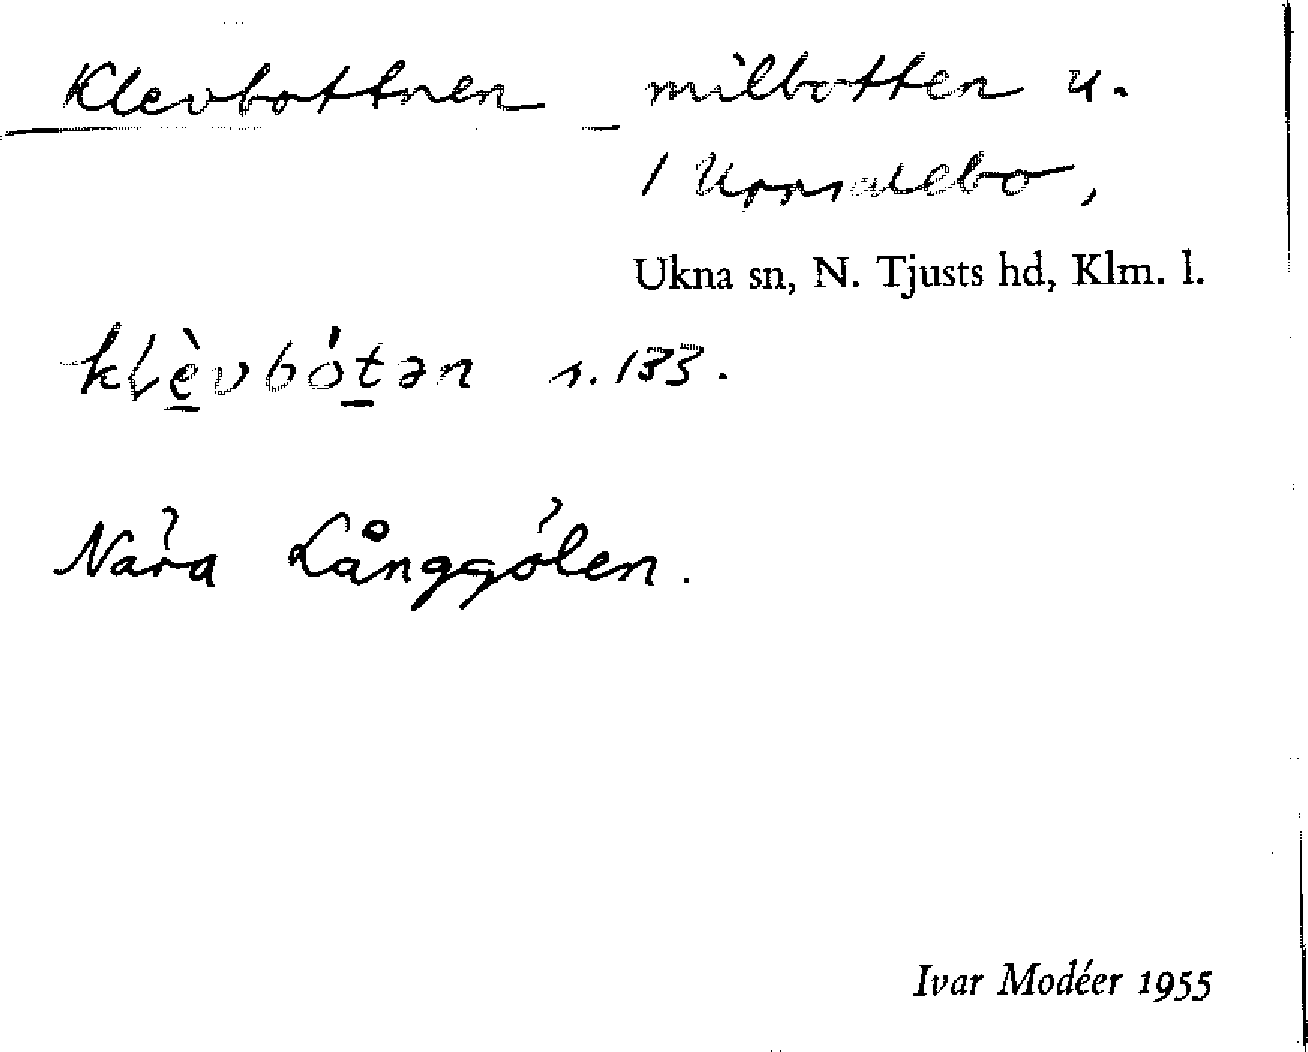 Klevbottnen milbotten u.
/ Urnsdebo,
Ukna sn, N. Tjusts hd, Klm. l.
klèvbótən s. 133.
Nära Långgölen.
Ivar Modéer 1955